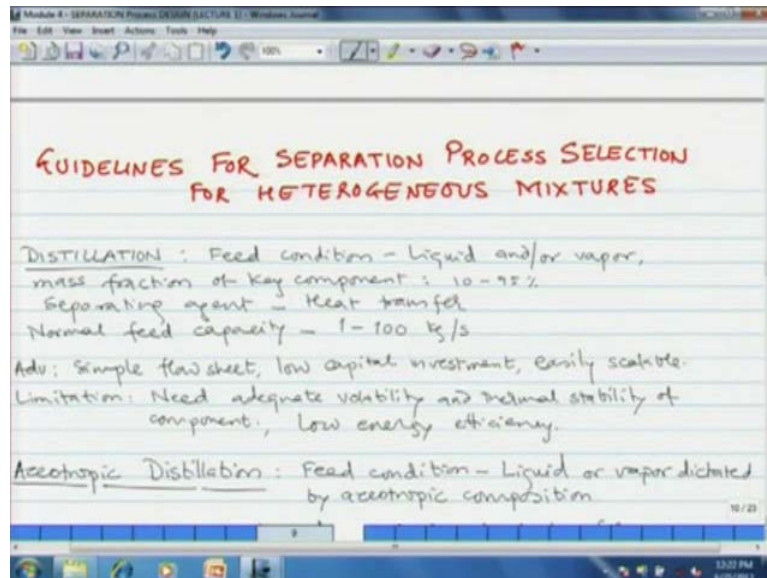 Module 4 - SEPARATION Process DESIGN (LECTURE 1) - Windows Journal
File Edit View Insert Actions Tools Help
100%
GUIDELINES FOR SEPARATION PROCESS SELECTION
FOR HETEROGENEOUS MIXTURES
DISTILLATION : Feed condition - Liquid and/or vapor,
mass fraction of key component : 10 - 95 %
Separating agent - Heat transfer
Normal feed capacity - 1 - 100 kg/s
Adv: Simple flow sheet, low capital investment, easily scalable.
Limitation: Need adequate volatility and thermal stability of
component., Low energy efficiency.
Azeotropic Distillation : Feed condition - Liquid or vapor dictated
by azeotropic composition
10/23
9
12:22 PM